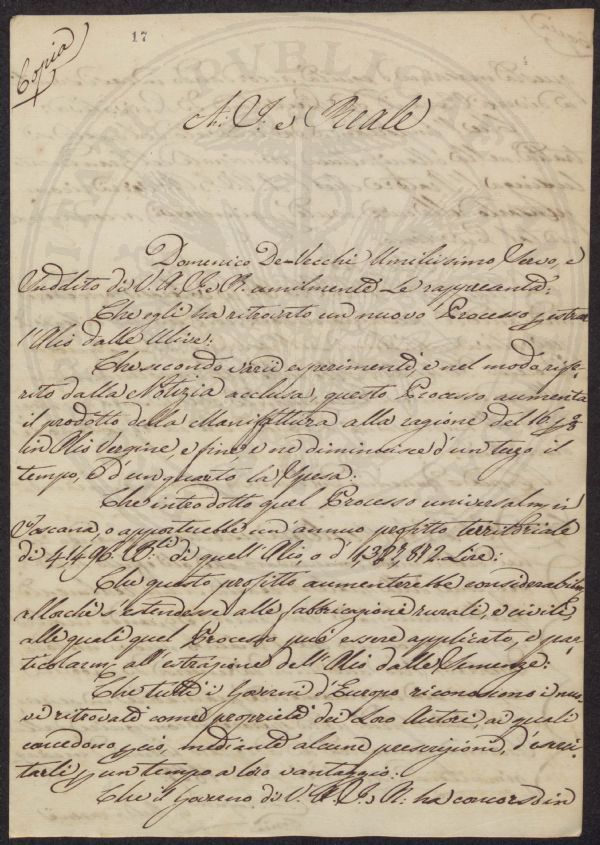 Copia
17
A. I. e Reale
Domenico De-Vecchi Umilissimo Servo, e
Suddito di V. A. I. e R. umilmente Le rappresenta:
Che egli ha ritrovato un nuovo Processo p estrar
l'Olio dalle Ulive:
Che secondo varii esperimenti, e nel modo rife-
rito dalla Notizia acclusa, questo Processo aumenta
il prodotto della Manifattura alla ragione del 16 p %
in Olio Vergine, e fine e ne diminuisce d'un terzo il
tempo, e d'un quarto la Spesa:
Che introdotto quel Processo universalm, in
Toscana, o apporterebbe un'annuo profitto territoriale
di 41.496. Bli di quell'Olio, o d' Lire:
Che questo profitto aumenterebbe considerabilm,
allorchè s'estendesse alle fabbricazioni rurali, e civili,
alle quali quel Processo può essere applicato, e par-
ticolarm, all'estrazione dell'Olio dalle Semenze:
Che tutti i Governi d'Europa riconoscono i nuo-
vi ritrovati come proprietà dei Loro Autori, ai quali
concedono pciò, mediante alcune prescrizioni, d'eserci-
tarli p un tempo a loro vantaggio:
Che il Governo di V. A. I. e R. ha concorso in